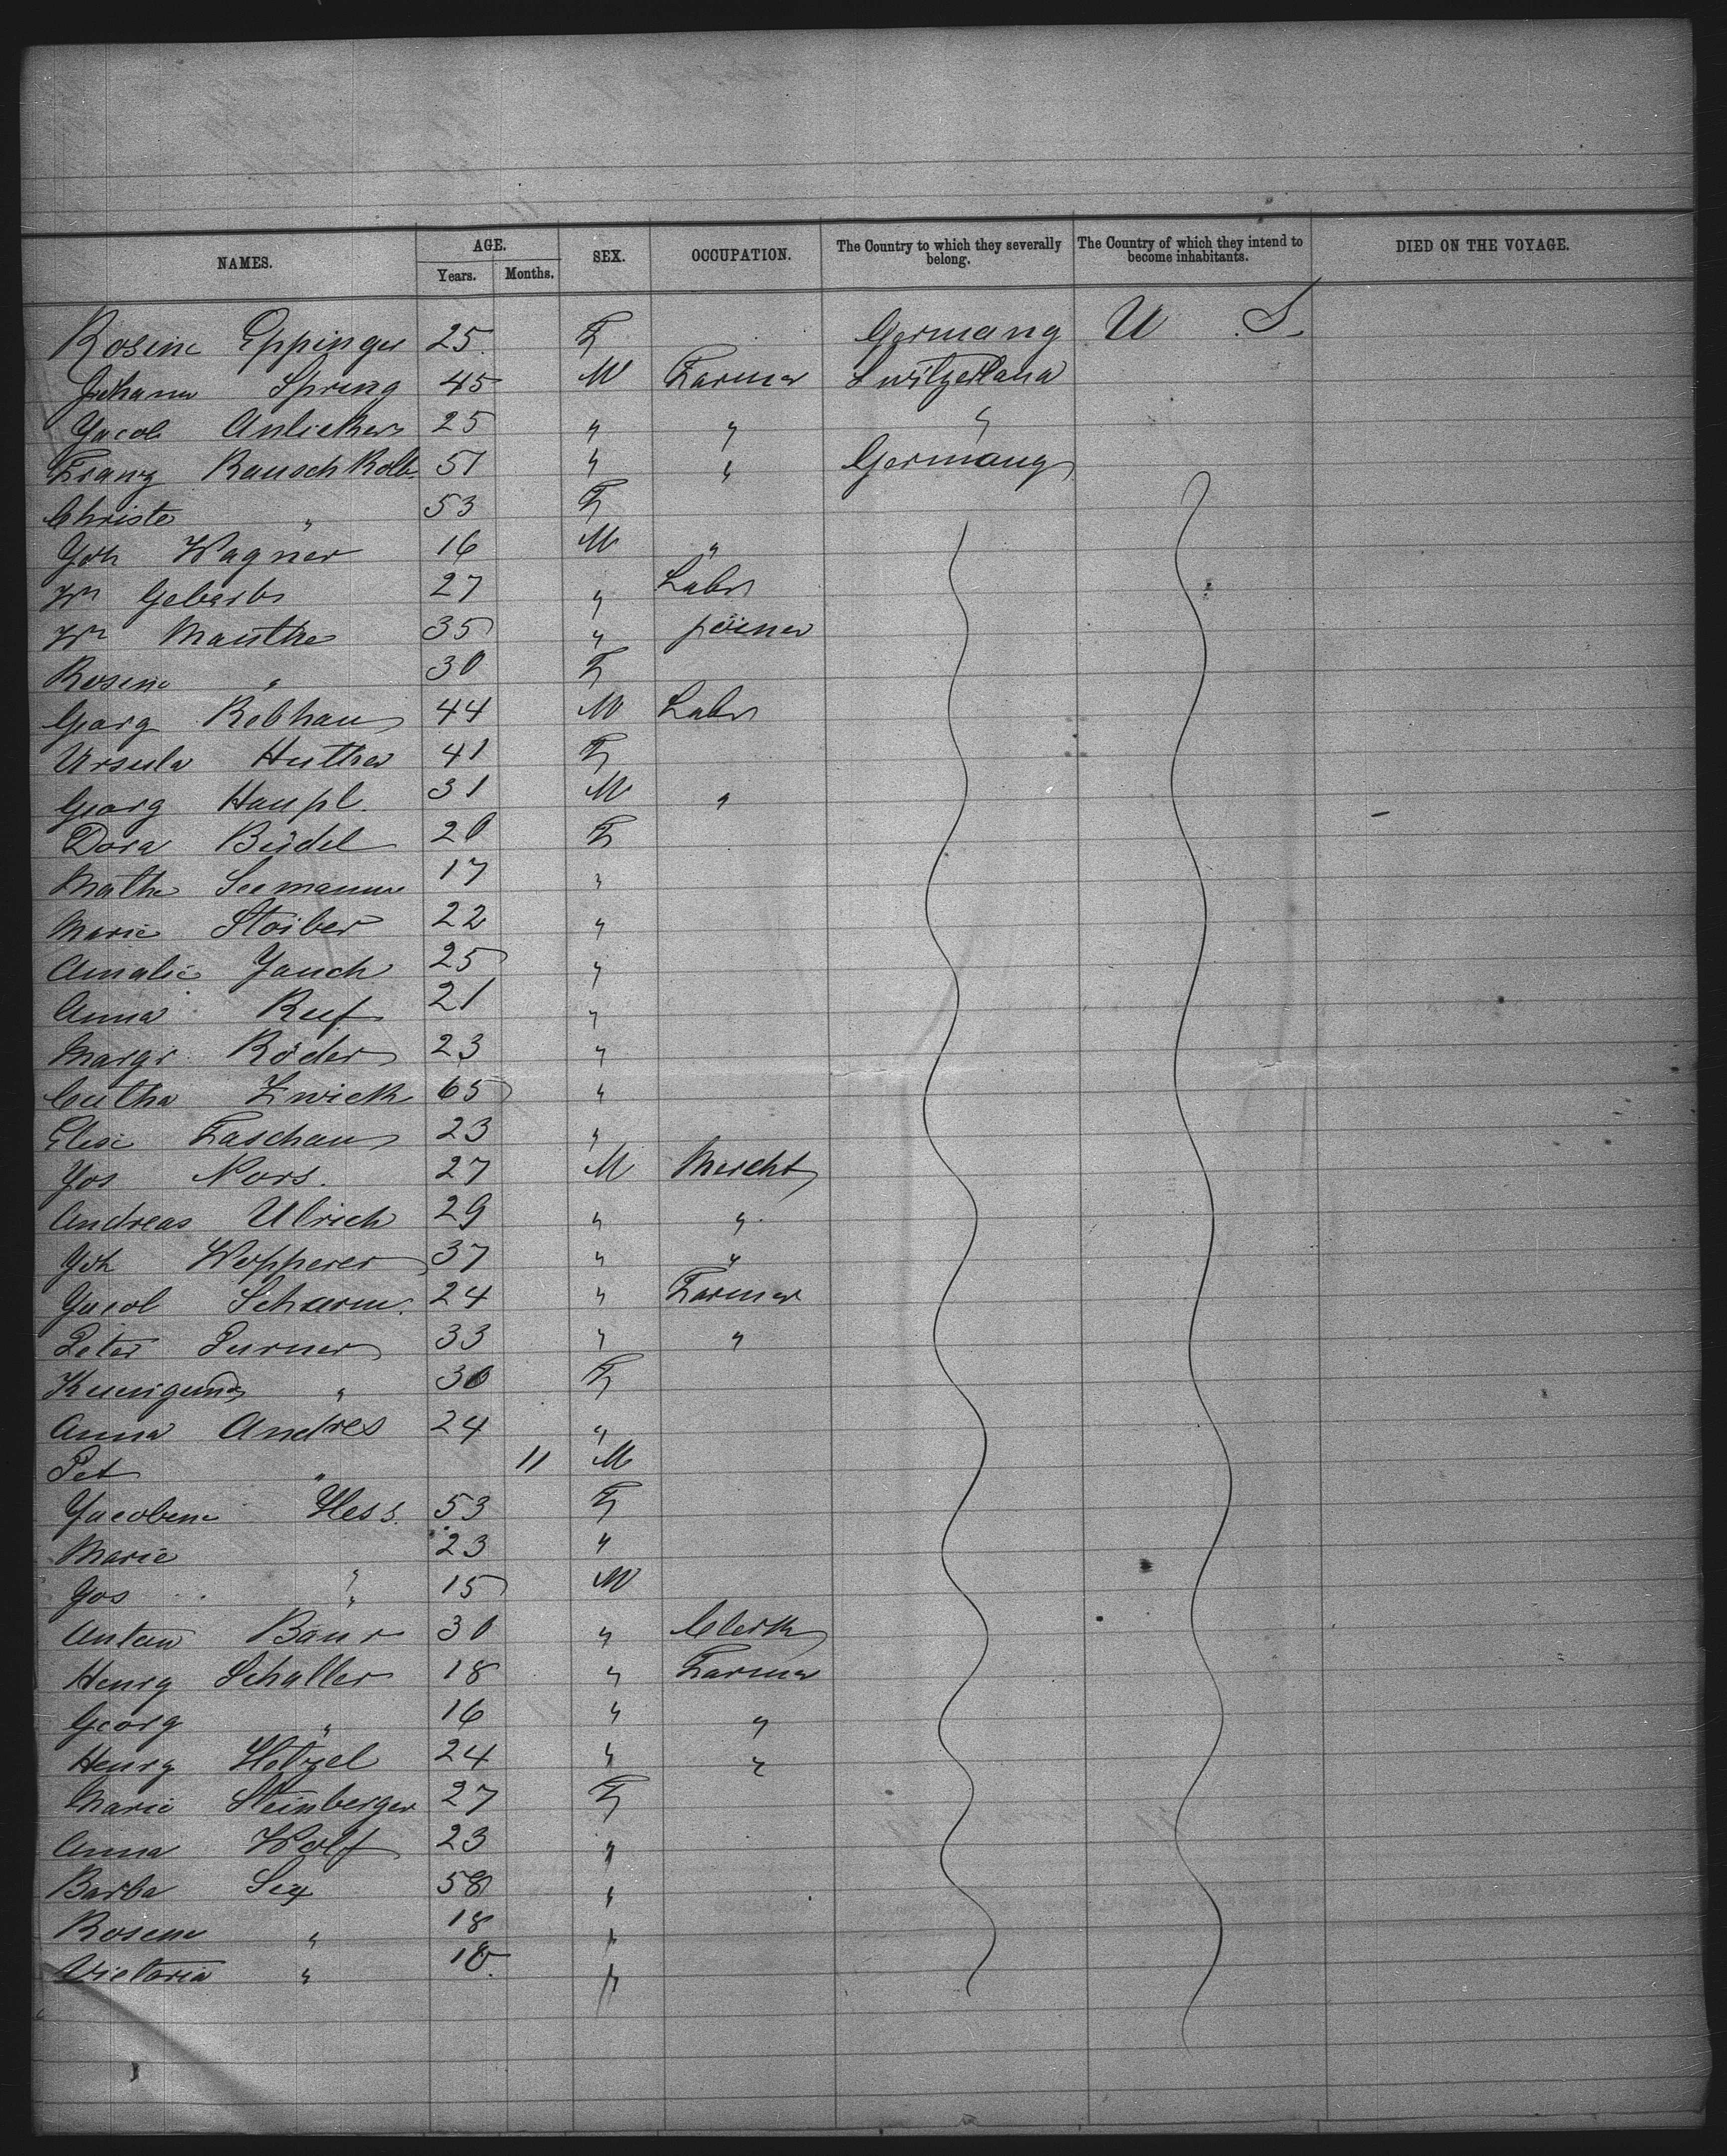 NAMES. AGE. Years. Months. SEX. OCCUPATION. The Country to which they severally belong. The Country of which they intend to become inhabitants. DIED ON THE VOYAGE.
Rosine Eppinger 25 F Germany U S
Johann Spring 45 M Farmer Switzerland
Jacob Anlicker 25 " " "
Franz Rauschkolb 51 " " Germany
Christe " 53 F
Joh Wagner 16 M "
Wm Gebarb 27 " Labr
Wm Manthe 35 " joiner
Rosine " 30 F
Georg Rebhan 44 M Labr
Ursula Huther 41 F
Georg Haupl. 31 M "
Dora Büdel 20 F
Mathe Seemann 17 "
Marie Stoiber 22 "
Amalie Jauch 25 "
Anna Ruf 21 "
Margr Röder 23 "
Cutha Zwick 65 "
Elise Faschau 23 "
Jos Nors. 27 M Mercht
Andreas Ulrich 29 " "
Joh Wopperer 37 " "
Jacob Scharm. 24 " Farmer
Peter Purner 33 " "
Kunigund " 30 F
Anna Andres 24 "
Pet " 11 M
Jacobine Hess. 53 F
Marie " 23 "
Jos " 15 M
Anton Baur 30 " Clerk
Henry Schaller 18 " Farmer
Georg " 16 " "
Henry Hetzel 24 " "
Marie Steinberger 27 F
Anna Wolf 23 "
Barba Sex 58 "
Rosine " 18 "
Victoria " 18 "